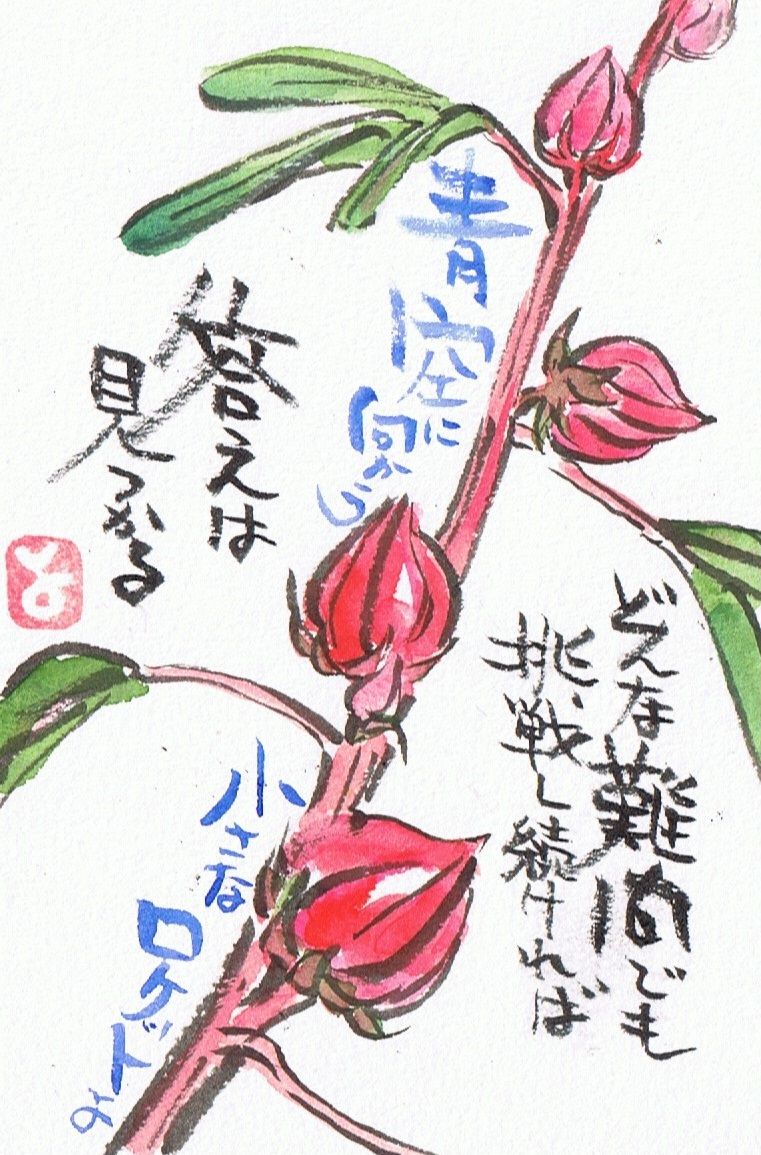 どんな難問でも
挑戦し続ければ
青空に
向かう
答えは
見つかる
小さな
ロケットよ